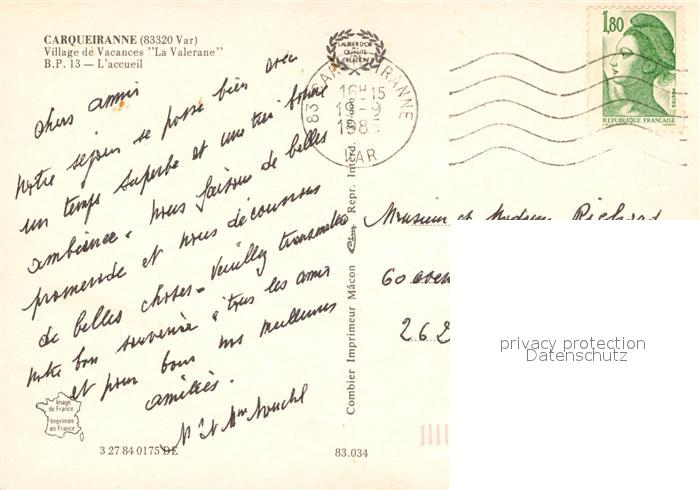 CARQUEIRANNE (83320 Var)
Village de Vacances "La Valerane"
B.P. 13 — L'accueil
chers amis
Notre séjour se passe bien avec
un temps superbe et une très bonne
ambiance. Nous faisons de belles
promenade et nous découvrons
de belles choses. Veuillez transmettre
notre bon souvenir à tous les amis
et pour vous nos meilleures
amitiés.
Mr et Mme
Image
de France
Imprimée
en France
3 27 84 0175 DE
83.034
Combier Imprimeur Mâcon
Repr. Interd.
LAURIER D'OR
QUALITÉ
CRÉATION
83 CARQUEIRANNE
16H15
VAR
1,80
POSTES
REPUBLIQUE FRANÇAISE
Monsieur et Madame Richard
60 aven
262
privacy protection
Datenschutz